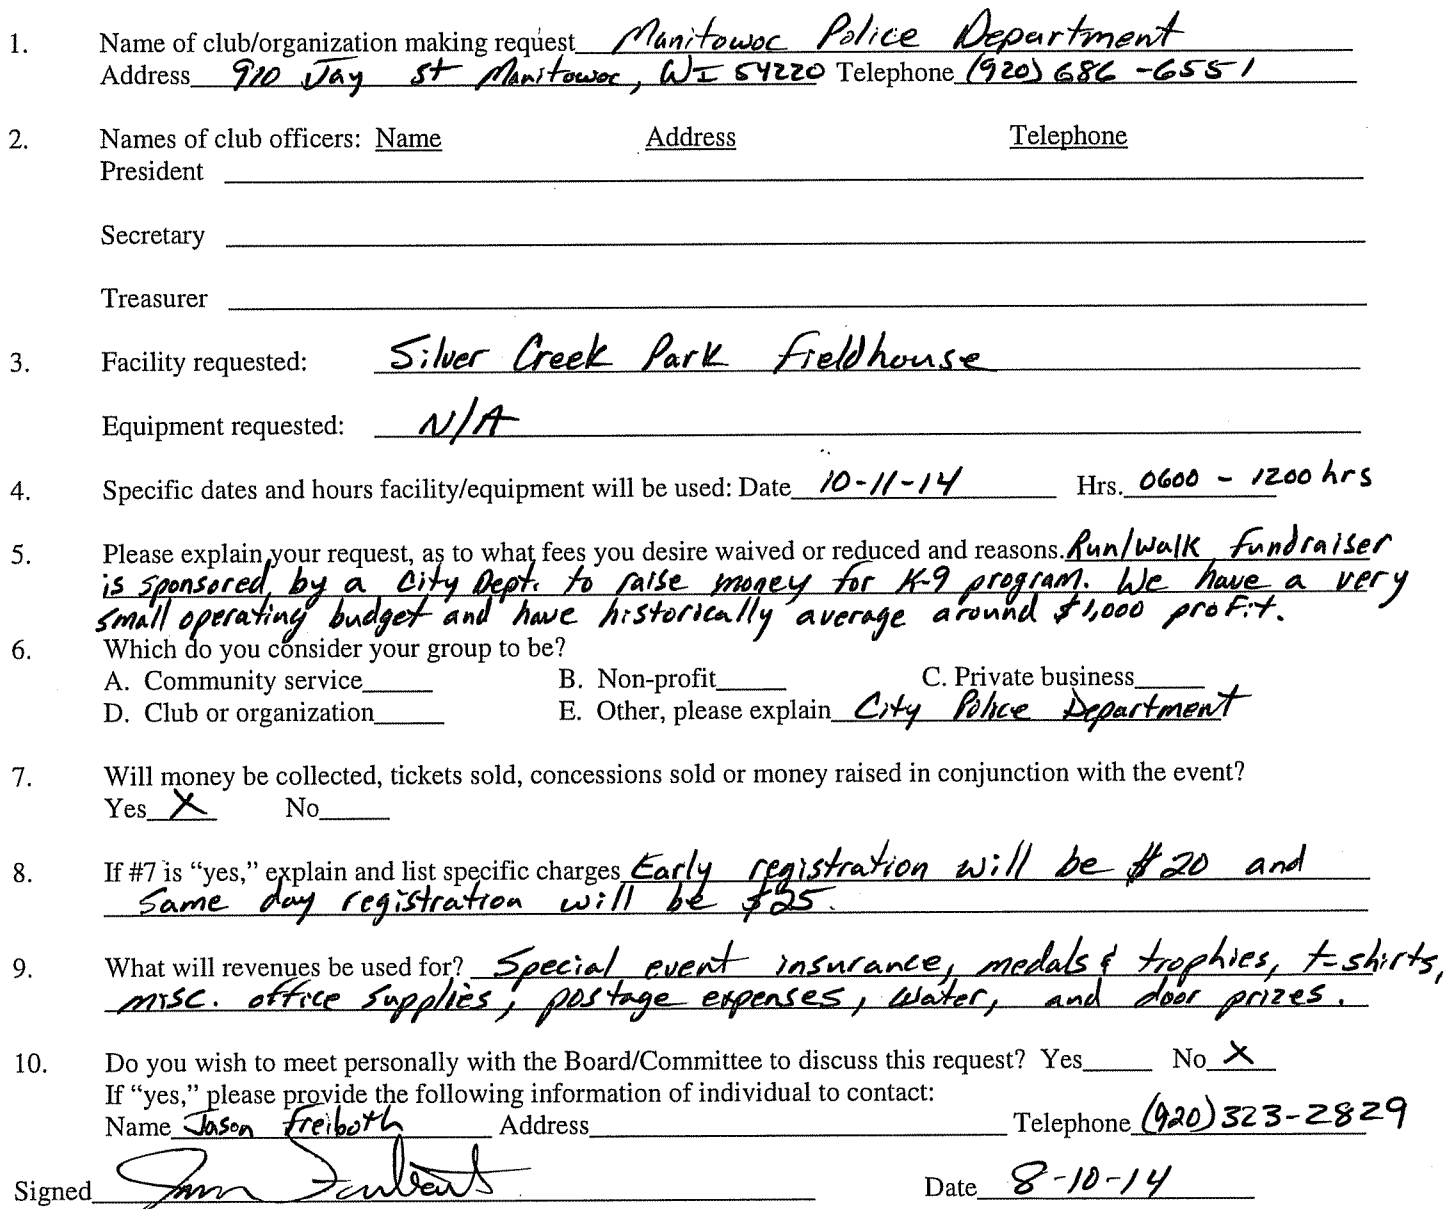 1. Name of club/organization making request Manitowoc Police Department
Address 910 Jay St Manitowoc, WI 54220 Telephone (920) 686-6551
2. Names of club officers: Name Address Telephone
President
Secretary
Treasurer
3. Facility requested: Silver Creek Park Fieldhouse
Equipment requested: N/A
4. Specific dates and hours facility/equipment will be used: Date 10-11-14 Hrs. 0600 - 1200 hrs
5. Please explain your request, as to what fees you desire waived or reduced and reasons. Run/Walk fundraiser
is sponsored by a City Dept. to raise money for K-9 program. We have a very
small operating budget and have historically average around $1,000 profit.
6. Which do you consider your group to be?
A. Community service B. Non-profit C. Private business
D. Club or organization E. Other, please explain City Police Department
7. Will money be collected, tickets sold, concessions sold or money raised in conjunction with the event?
Yes X No
8. If #7 is “yes,” explain and list specific charges Early registration will be $20 and
same day registration will be $25.
9. What will revenues be used for? Special event insurance, medals & trophies, t-shirts,
misc. office supplies, postage expenses, water, and door prizes.
10. Do you wish to meet personally with the Board/Committee to discuss this request? Yes No X
If “yes,” please provide the following information of individual to contact:
Name Jason Freiboth Address Telephone (920) 323-2829
Signed Jason Freiboth Date 8-10-14